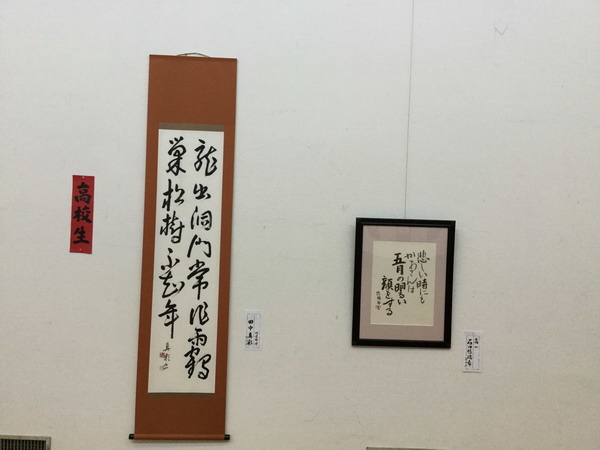 高校生
龍出洞門常作雨鶴
巣松樹不知年
田中
悲しい時にも
かあさんは
五月の明るい
顔をする